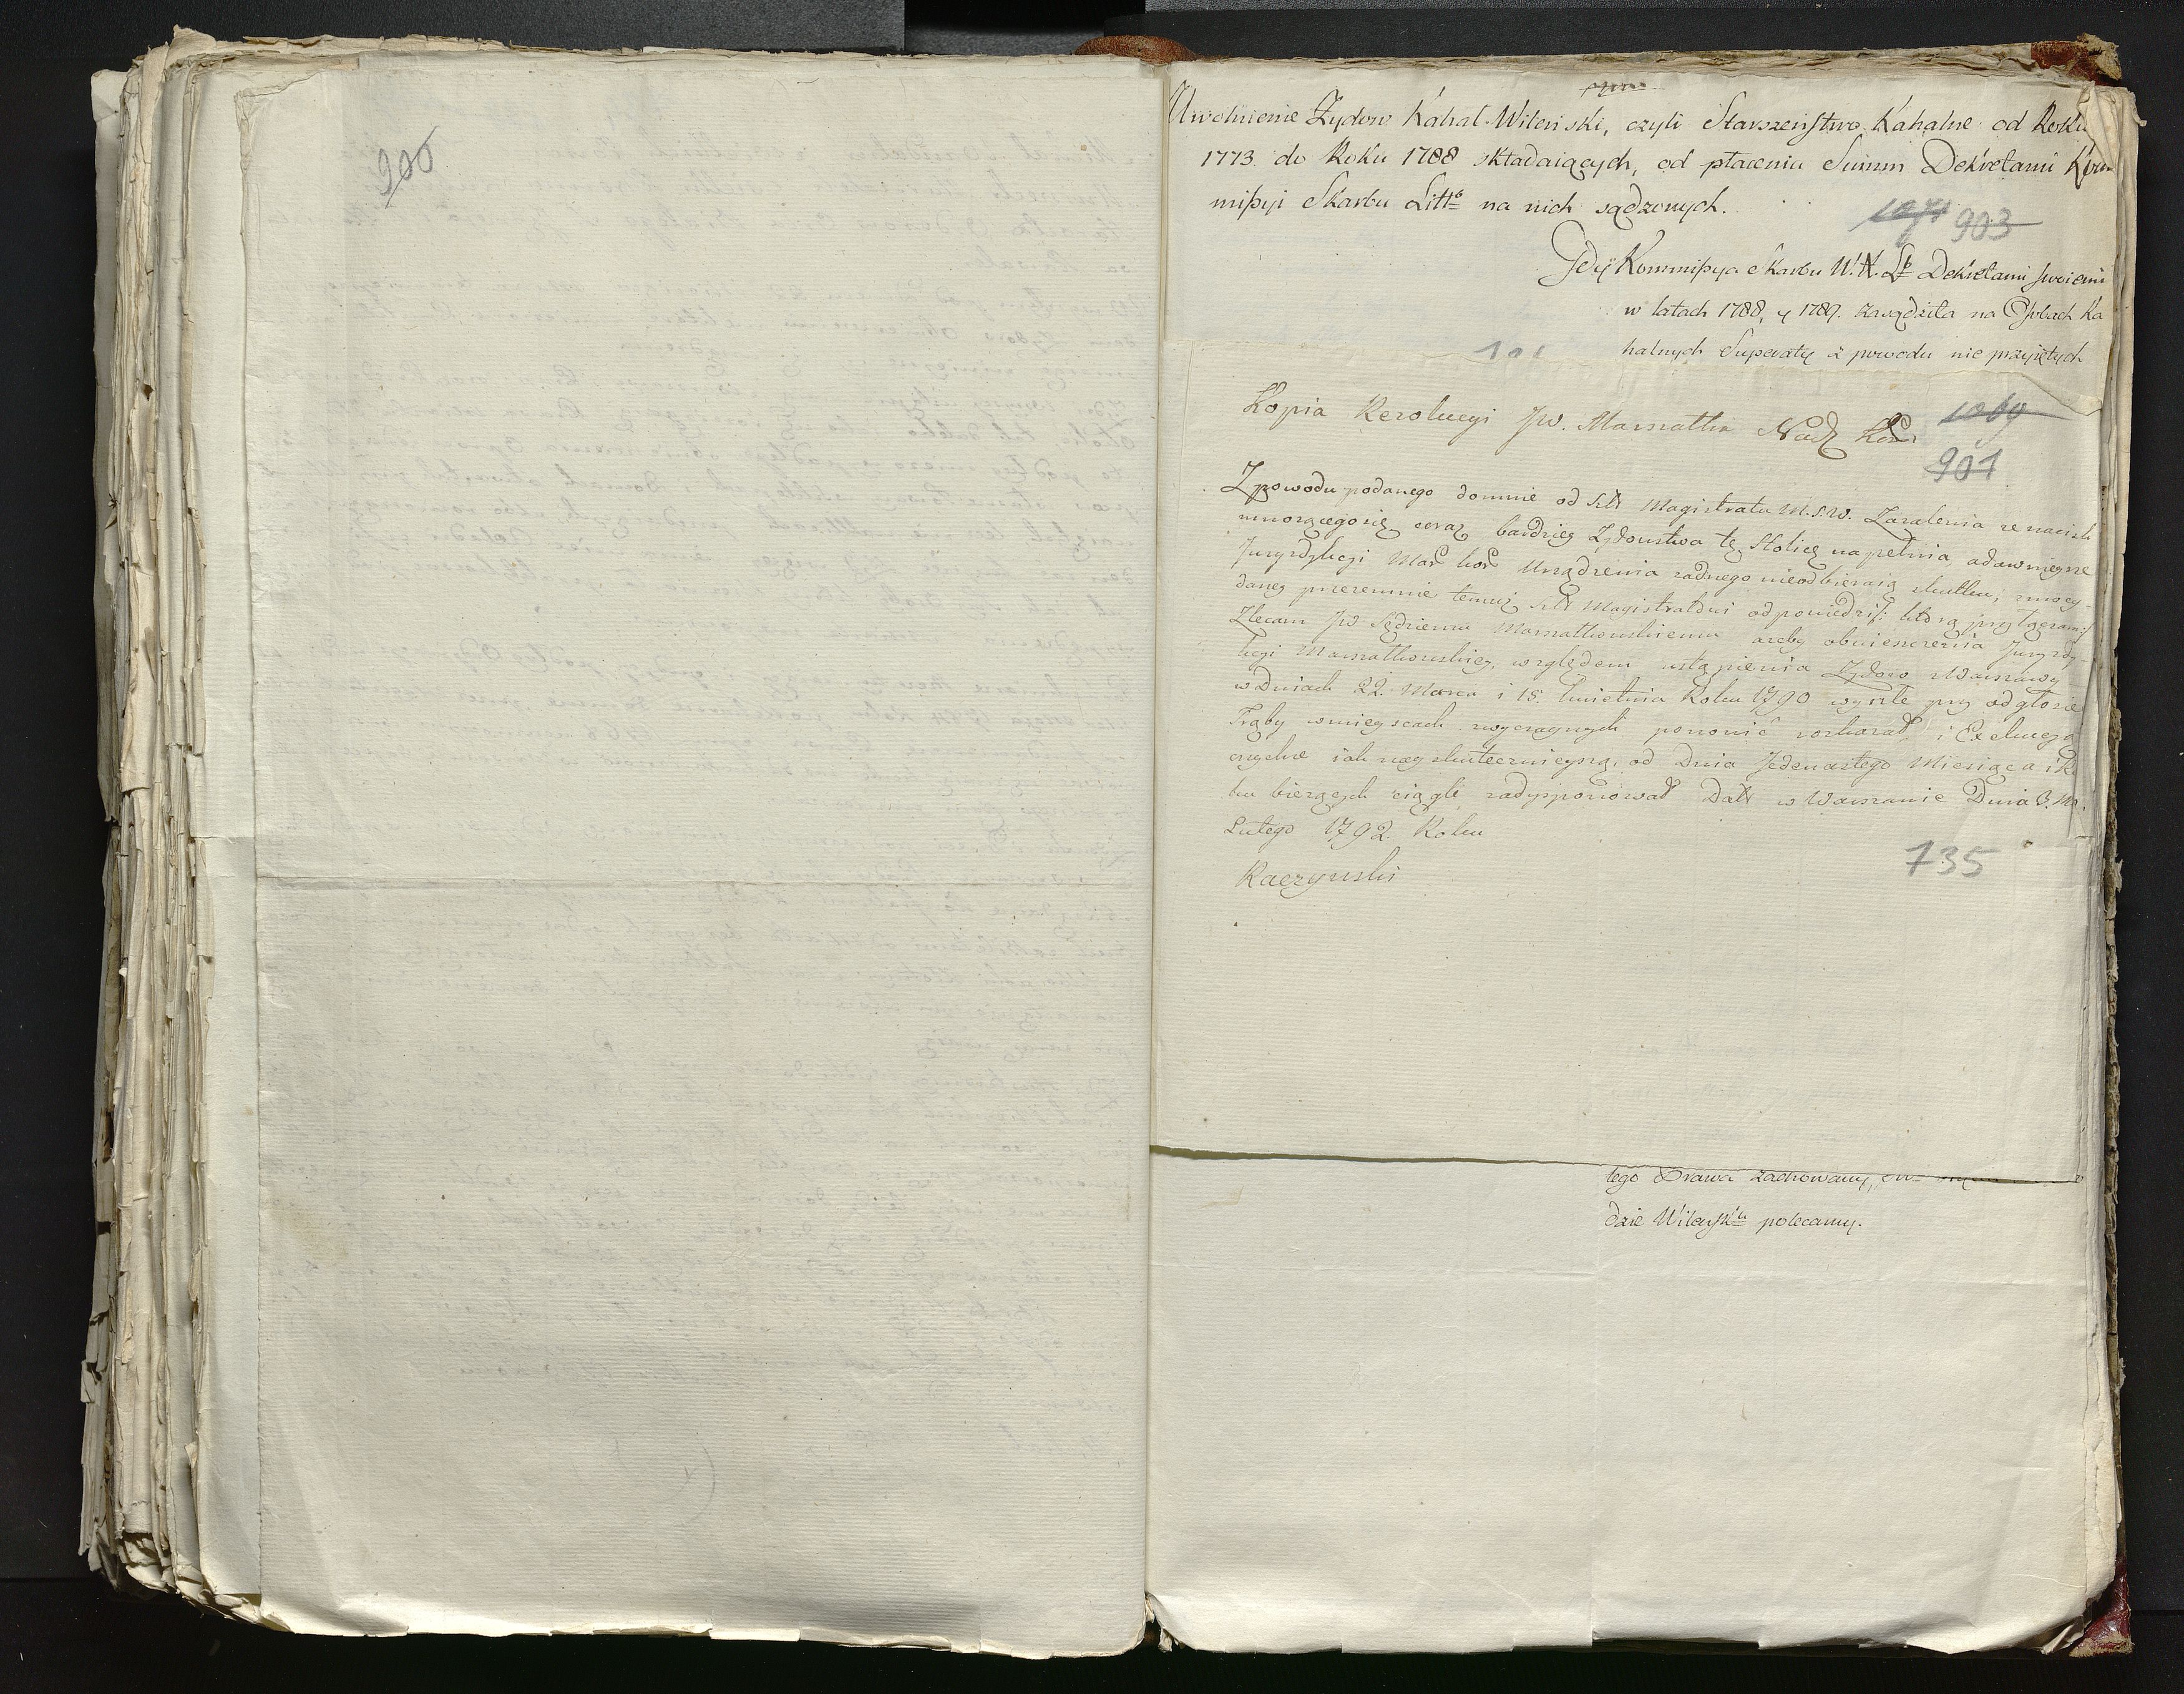 900
Uwolnienie Żydow Kahał Wileński, czyli Starszeństwo Kahalne od Roku
1773. do Roku 1788 składaiących, od płacenia Summ Dekretami Kom
mißyi Skarbu Litto na nich sądzonych.
903
Gdy Kommißya Skarbu W. X. Lo Dekretami swoiemi
w latach 1788, y 1789. zasądziła na Osobach Ka
halnych Superaty z powodu nie przyiętych
Kopia Rezolucyi JW. Marszałka Nad Kor
1069
901
Z powodu podanego do mnie od Szl Magistratu M.S.W. Zażalenia że nacisk
mnożącego się coraz bardziey Żydowstwa tę Stolicę napełnia, a dawnieysze
Juryzdykcyi Mar Kor Urządzenia żadnego nieodbieraią skutku, z mocy
daney przezemnie temuż Szl Magistratowi odpowiedzi, którą przyłączam
Zlecam JW Sędziemu Marszałkowskiemu ażeby obwieszczenia Juryzdy-
kcyi Marszałkowskiey, względem ustąpienia Żydow z Warszawy
w Dniach 22. Marca i 15. Kwietnia Roku 1790 wyszłe przy odgłosie
Trąby w mieyscach zwyczaynych ponowić rozkazał, i Exekucyą
onychże iak nayskutecznieyszą, od Dnia Jedenastego Miesiąca i Ro
ku bieżących ciągle zadysponował Datt w Warszawie Dnia 3. Ma
Lutego 1792. Roku
735
Raczynski
tego Prawa zachowany,
dzie Wileńsko polecamy.